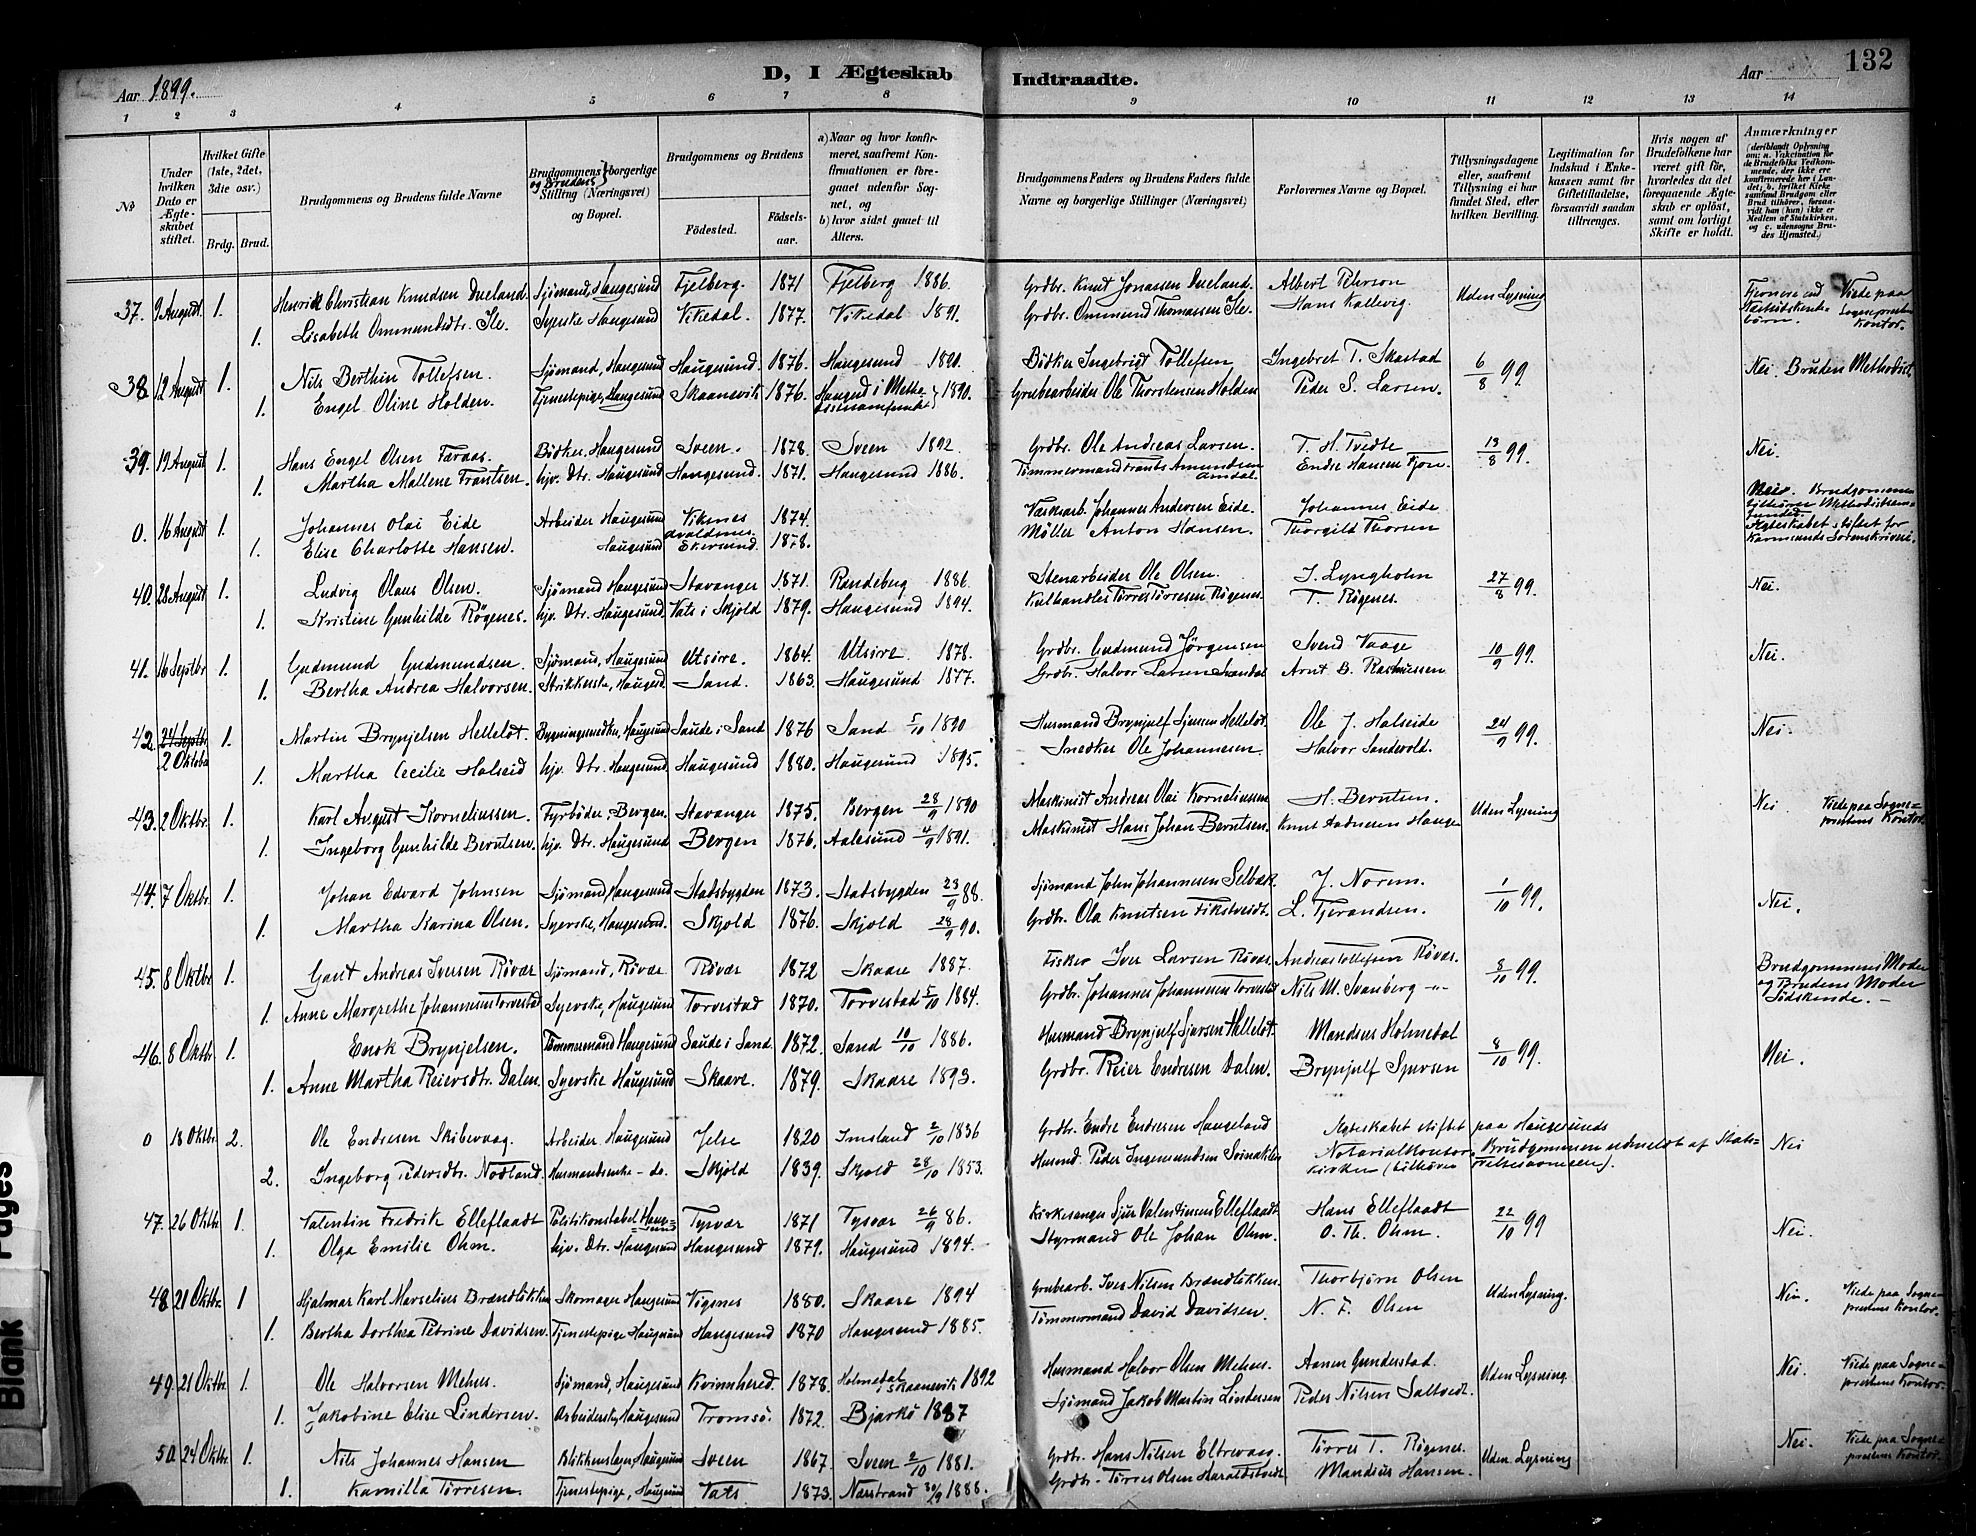 132
D, I Ægteskab Indtraadte.
Aar 1899. Aar
1 2 3 4 5 6 7 8 9 10 11 12 13 14
No
Under hvilken Dato er Ægteskabet stiftet.
Hvilket Gifte (1ste, 2det, 3die osv.)
Brdg. Brud.
Brudgommens og Brudens fulde Navne
Brudgommens og Brudens borgerlige Stilling (Næringsvei) og Bopæl.
Brudgommens og Brudens
Fødested. Fødselsaar.
a) Naar og hvor konfirmeret, saafremt Konfirmationen er foregaaet udenfor Sognet, og b) hvor sidst gaaet til Alters.
Brudgommens Faders og Brudens Faders fulde Navne og borgerlige Stillinger (Næringsvei)
Forlovernes Navne og Bopæl.
Tillysningsdagene eller, saafremt Tillysning ei har fundet Sted, efter hvilken Bevilling.
Legitimation for Indskud i Enkekassen samt for Giftetilladelse, forsaavidt saadan tiltrænges.
Hvis nogen af Brudefolkene har været gift før, hvorledes da det foregaaende Ægteskab er opløst, samt om lovligt Skifte er holdt.
Anmærkninger (deriblandt Oplysning om: a. Vakcination for de Brudefolks Vedkommende, der ikke ere konfirmerede her i Landet; b. hvilket Kirkesamfund Brudgom eller Brud tilhører, forsaavidt han (hun) ikke er Medlem af Statskirken, og c. udensogns Brudes Hjemsted.)
37. 9 August 1. Henrik Christian Knudsen Dueland. Sjømand, Haugesund Fjelberg. 1871 Fjelberg 1886. Grdbr. Knut Jonassen Dueland. Albert Peterson Uden Lysning Viede paa Sogneprestens Kontor.
1. Lisabeth Ommundsdtr. Ile. Syerske Haugesund Vikedal. 1877. Vikedal 1891. Grdbr. Ommund Thomassen Ile. Hans Kallevig.
38. 12 August 1. Nils Berthin Tollefsen. Sjømand, Haugesund Haugesund. 1876. Haugesund 1891. Bödker Ingebrigt Tollefsen Ingebret T. Skastad 6/8 99 Nei. Bruden Methodist.
1. Engel Oline Holden. Tjenestepige, Haugesund Skaanevik 1876. 1890. Grubearbeider Ole Thorstensen Holden Peder S. Larsen.
39. 19 August 1. Hans Engel Olsen Færaas. Bödker, Haugesund Sveen. 1878. Sveen 1892. Grdbr. Ole Andreas Larsen. T. H. Tvedte 13/8 99. Nei.
1. Martha Mallene Frantsen. hjv. Dtr. Haugesund Haugesund. 1871. Haugesund 1886. Tömmermand Frants Amundsen Endre Hansen Fjon.
0. 16 August 1. Johannes Olai Eide Arbeider Haugesund Viksnes Avaldsnes 1874. Væskarb. Johannes Andersen Eide. Johannes Eide Nei. Brudgommen tilhører Methodistsamfundet. Ægteskabet stiftet for Karmsunds Sorenskriveri.
1. Elise Charlotte Hansen. Haugesund Ekersund. 1878. Möller Anton Hansen Thorgild Thorsen
40. 28 August 1. Ludvig Olaus Olsen. Sjømand Haugesund Stavanger 1871. Randeberg 1886. Stenarbeider Ole Olsen. J. Lyngholm 27/8 99. Nei.
1. Kristine Gunhilde Røgenes. hjv. Dtr. Haugesund. Vats i Skjold 1879. Haugesund 1894. Kulhandler Tørres Tørresen Røgenes T. Røgenes.
41. 16 Septbr 1. Gudmund Gudmundsen. Sjømand, Haugesund Utsire. 1864. Utsire. 1878. Grdbr. Gudmund Jørgensen Svend Vaage 10/9 99. Nei.
1. Bertha Andrea Halvorsen. Strikkerske, Haugesd Sand. 1863. Haugesund 1877. Grdbr. Halvor Larsen Arnt B. Rasmussen
42. 24 Septbr 2 Oktober 1. Martin Brynjelsen Helleløt. Bygningssnedker, Haugesund Saude i Sand 1876 Sand 5/10 1890 Husmand Brynjulf Sjursen Helleløt. Ole J. Halseide 24/9 99. Nei.
1. Martha Cecilie Halseid hjv. Dtr. Haugesund Haugesund 1880. Haugesund 1895. Snedker Ole Johannesen. Halvor Sandvold.
43. 2 Oktbr. 1. Karl August Korneliussen. Fyrbøder, Bergen. Stavanger 1875. Bergen 28/9 1890 Maskinist Andreas Olai Korneliussen H. Berntsen. Uden Lysning Nei Viede paa Sogneprestens Kontor.
1. Ingeborg Gunhilde Berntsen. hjv. Dtr. Haugesund Bergen 1876. Aalesund 4/9 1891. Maskinist Hans Johan Berntsen. Knut Aadnesen Hauge
44. 7 Oktbr. 1. Johan Edvard Johnsen Sjømand, Haugesund Stadsbygden 1873. Stadsbygden 23/9 88. Sjømand John Johannesen Selbæk. J. Norem. 1/10 99. Nei.
1. Martha Karina Olsen. Syerske, Haugesund. Skjold 1876. Skjold 28/9 90. Grdbr. Ola Knutsen Fikstveidt. L. Tjerandsen.
45. 8 Oktbr. 1. Gaut Andreas Iversen Røvær Sjømand, Røvær Røvær 1872 Skaare 1887. Fisker Iver Larsen Røvær Andreas Tollefsen Røvær. 8/10 99. Brudgommens Moder og Brudens Moder Södskende. –
1. Anne Margrethe Johannesen Torvestad Syerske, Haugesund Torvestad 1870. Torvestad 5/10 1884. Grdbr. Johannes Johannesen Torvestad Nils M. Svanberg –"–
46. 8 Oktbr 1. Enok Brynjelsen. Tömmermand Haugesund Saude i Sand. 1872. Sand 10/10 1886. Husmand Brynjulf Sjursen Helleløt. Mandius Holmedal 8/10 99. Nei.
1. Anne Martha Reiersdtr. Dalen. Syerske Haugesund Skaare. 1879. Skaare 1893. Grdbr. Reier Endresen Dalen. Brynjulf Sjursen
0 18 Oktbr. 2. Ole Endresen Skibevaag. Arbeider. Haugesund Jelse 1820 Imsland 2/10 1836 Grdbr. Endre Endresen Haugeland Ægteskabet stiftet paa Haugesunds Notarialkontor. Brudgommen udmeldt af Statskirken Nei
2. Ingeborg Pedersdtr. Nodland. Husmandsenke – do. Skjold 1839. Skjold 28/10 1853. Husmd. Peder Ingemundsen
47. 26 Oktbr. 1. Valentin Fredrik Elleflaadt Politikonstabel Haugesund Tysvær 1871 Tysvær 26/9 86. Kirkesanger Sjur Valentinsen Elleflaadt. Hans Elleflaadt 22/10 99 Nei.
1. Olga Emilie Ohm. hjv. Dtr. Haugesund Haugesund 1879. Haugesund 1894. Styrmand Ole Johan Ohm. O. Th. Ohm.
48. 21 Oktbr. 1 Hjalmar Karl Marselius Brændlikken Skomager Haugesund Vigsnes 1880. Skaare 1894 Grubearb. Iver Nilsen Brændlikken. Thorbjørn Olsen Uden Lysning. Nei. Viede paa Sogneprestens Kontor.
1. Bertha Dorthea Petrine Davidsen. Tjenestepige Haugesund Haugesund 1870 Haugesund 1885. Tömmermand David Davidsen. N. F. Olsen
49. 21 Oktbr. 1. Ole Halvorsen Mehus. Sjømand, Haugesund Kvinnherred. 1878. Holmedal i Skaanevik 1892 Husmand Halvor Olsen Mehus. Aanen Gundestad. Uden Lysning. Nei. Viede paa Sogneprestens Kontor.
1. Jakobine Elise Lindersen. Arbeiderske, Haugesund Tromsö. 1872. Bjarkö 1887 Sjømand Jakob Martin Lindersen Peder Nilsen Saltvedt.
50. 24 Oktbr. 1. Nils Johannes Hansen Blikkenslager, Haugesund Sveen 1867. Sveen 2/10 1881. Grdbr. Hans Nilsen Eltrevaag. Tørres T. Røgenes. Uden Lysning Nei. Viede paa Sogneprestens Kontor.
1. Kamilla Tørresen. Tjenestepige, Haugesund Vats 1873. Nærstrand 30/9 1888. Grdbr. Tørres Olsen Haraldstveit Mandius Hansen.
Blank Pages